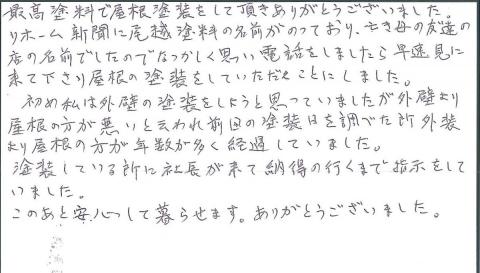 最高塗料で屋根塗装をして頂きありがとうございました。
リホーム新聞に尾越塗料の名前がのっており、亡き母の友達の
店の名前でしたのでなつかしく思い電話をしましたら早速見に
来て下さり屋根の塗装をしていただくことにしました。
初め私は外壁の塗装をしようと思っていましたが外壁より
屋根の方が悪いと云われ前回の塗装日を調べた所外装
より屋根の方が年数が多く経過していました。
塗装している所に社長が来て納得の行くまで指示をして
いました。
このあと安心して暮らせます。ありがとうございました。